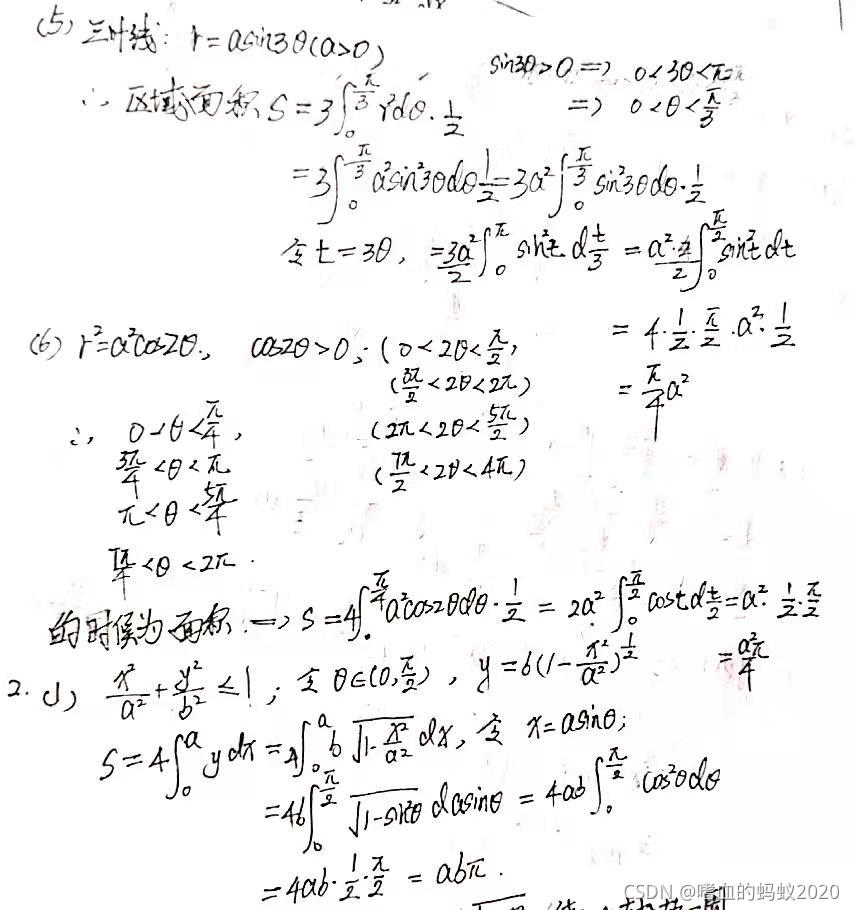 (5) 三叶线: r=asin3θ(a>0)
sin3θ>0 => 0<3θ<π
=> 0<θ<π/3
∴ 区域面积 S=3∫_0^{π/3} r²dθ·1/2
=3∫_0^{π/3} a²sin²3θdθ 1/2=3a²∫_0^{π/3} sin²3θdθ·1/2
令t=3θ, =3a²/2 ∫_0^π sin²t d t/3 = a²·2/2 ∫_0^{π/2} sin²t dt
= 4·1/2·π/2·a²·1/2
= π/4 a²
(6) r²=a²cos2θ, cos2θ>0; (0<2θ<π/2,
(3π/2<2θ<2π)
(2π<2θ<5π/2)
(7π/2<2θ<4π)
∴ 0<θ<π/4,
3π/4<θ<π
π<θ<5π/4
7π/4<θ<2π.
的时候为面积 => S=4∫_0^{π/4} a²cos2θdθ·1/2 = 2a²∫_0^{π/2} cost d t/2=a²·1/2·π/2
=a²π/4
2. (1) x²/a²+y²/b²≤1; 令 θ∈(0,π/2), y=b(1-x²/a²)^{1/2}
S=4∫_0^a ydx=4∫_0^a b√(1-x²/a²) dx, 令 x=asinθ;
=4b∫_0^{π/2} √(1-sin²θ) dasinθ = 4ab∫_0^{π/2} cos²θdθ
=4ab·1/2·π/2 = abπ.
CSDN @嗜血的蚂蚁2020